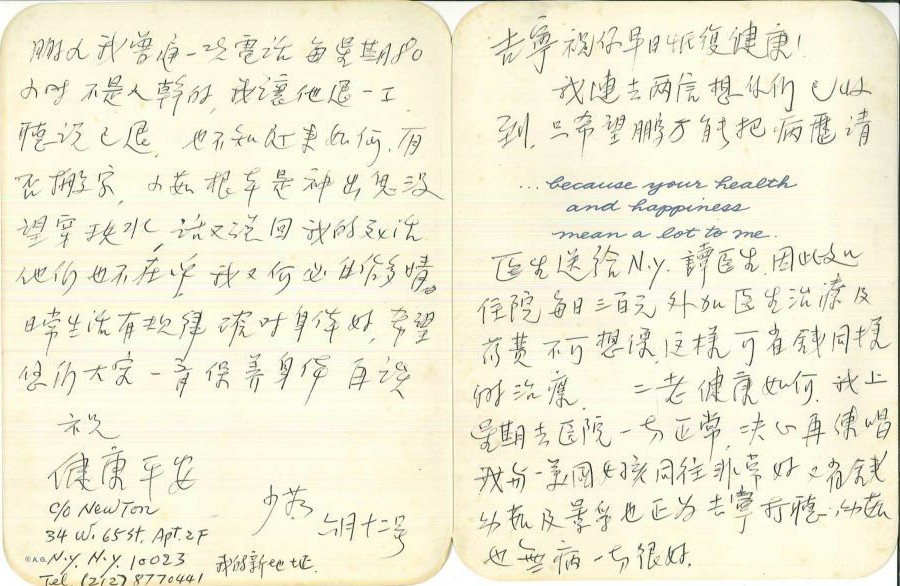 吉寧祝你早日恢復健康!
我連去两信想你们已收
到,只希望鹏万能把病歷請
...because your health
and happiness
mean a lot to me.
医生送給N.Y.譚医生,因此次
住院每日三百元外加医生治療及
药費不可想像,这樣可省錢同樣
的治療. 二老健康如何,我上
星期去医院一切正常,决心再練唱
我与一美國女孩同往非常好又省錢
幼茹及景彩也正为吉寧打聽.幼茹
也無病一切很好.
我曾通一次電話每星期80
小时不是人幹的,我讓他退一工,
聽说已退, 也不知近来如何,有
否搬家, 小茹根本是神出鬼没
望穿秋水,話又说回我的死活
他们也不在乎,我又何必自作多情.
日常生活有规律 身体好,希望
您们大家一齊保養身体再谈
祝
健康平安
少茹
六月十二号
c/o NewTon
34 W. 65 St. Apt. 2F
©A.G. N.Y. N.Y. 10023
Tel. (212) 8770441
我的新地址.